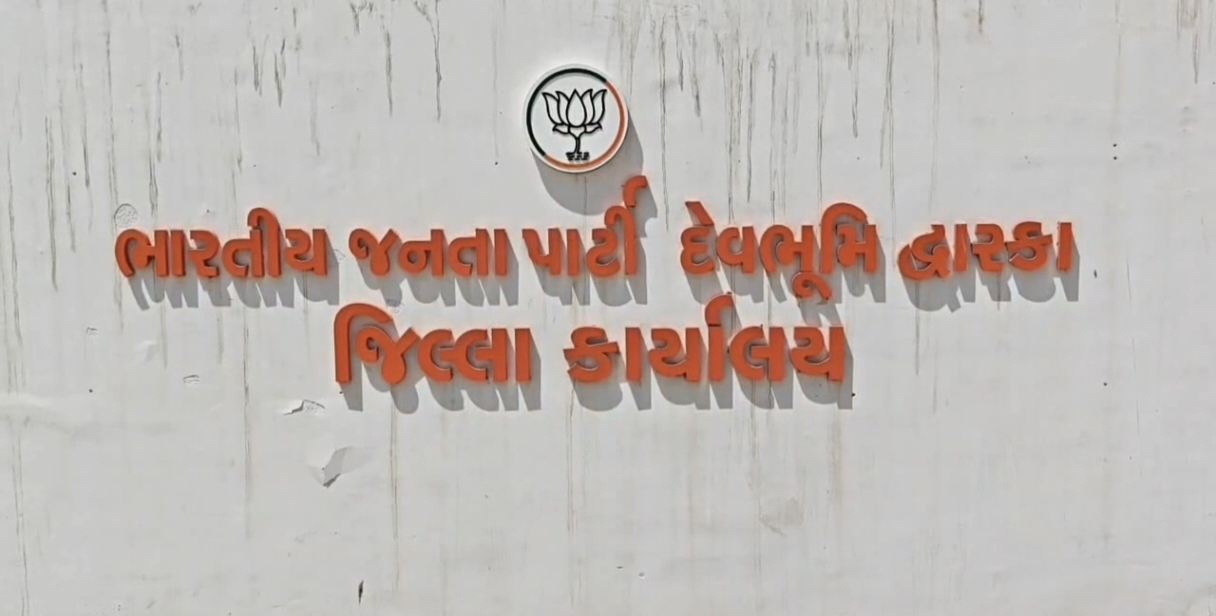 ભારતીય જનતા પાર્ટી દેવભૂમિ દ્વારકા
જિલ્લા કાર્યાલય